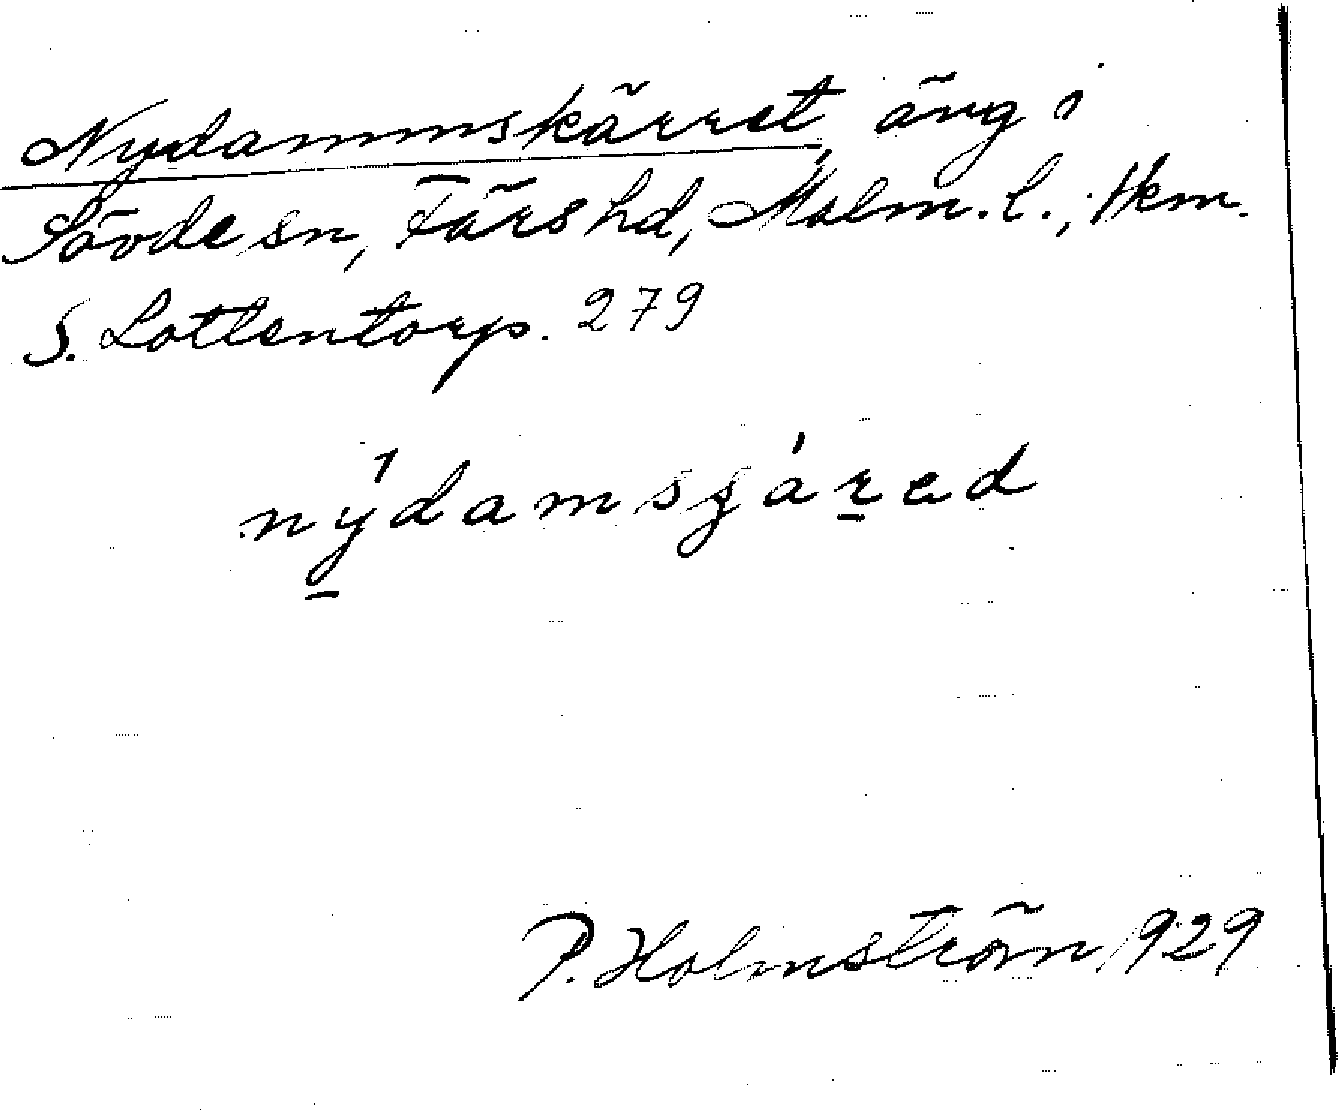 Nydammskärret, äng i
Sövde sn, Färs hd, Malm. l., Hem.
S. Lottentorp. 279
nýdamsʒáred
P. Holmström 1929